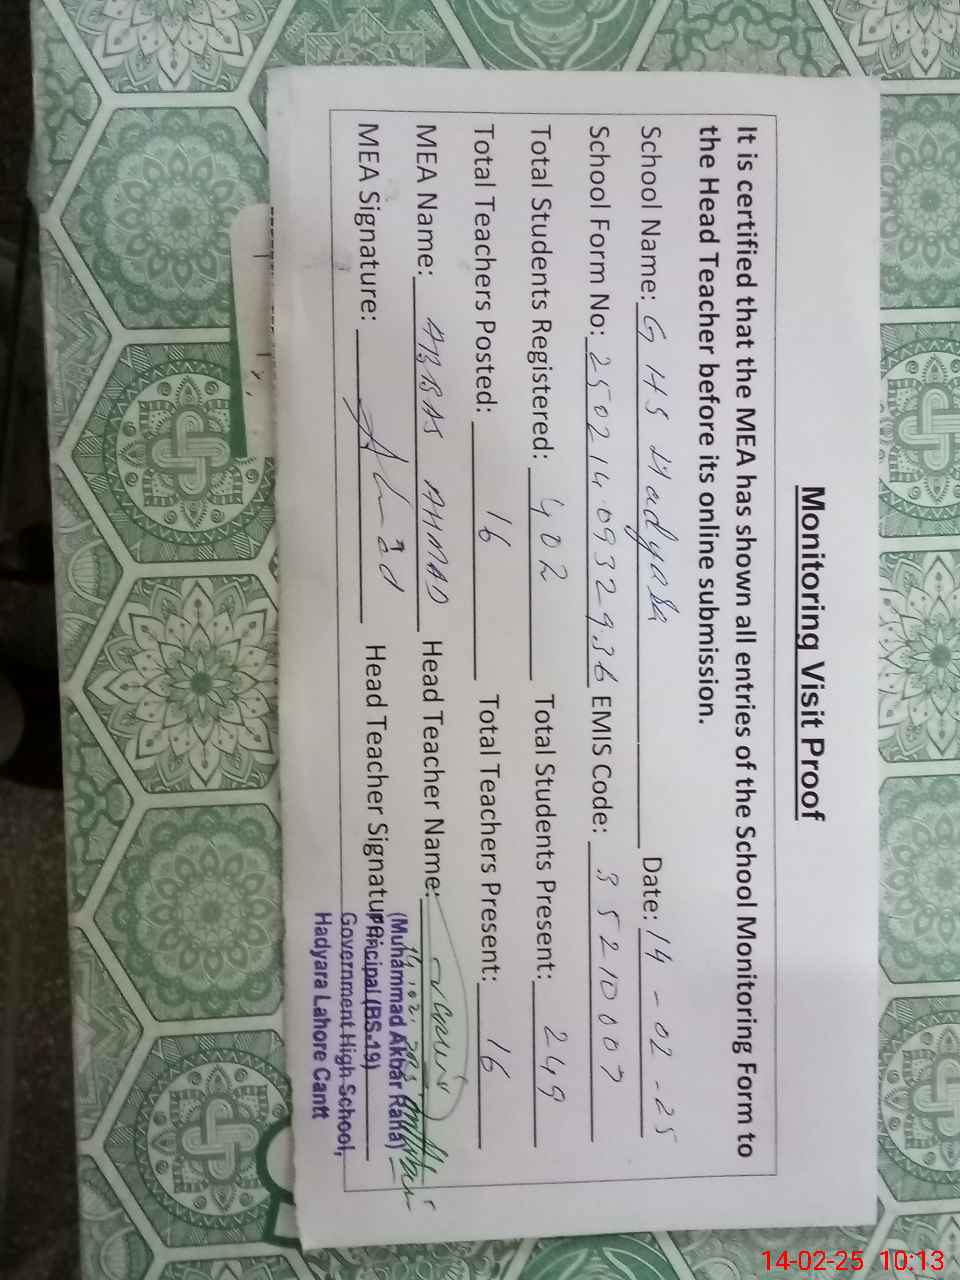 Monitoring Visit Proof
It is certified that the MEA has shown all entries of the School Monitoring Form to
the Head Teacher before its online submission.
School Name: G H S Hadyara Date: 14-02-25
School Form No: 2502140932936 EMIS Code: 35210007
Total Students Registered: 402 Total Students Present: 249
Total Teachers Posted: 16 Total Teachers Present: 16
MEA Name: ABBAS AHMAD Head Teacher Name:
MEA Signature: Ahmad Head Teacher Signature:
(Muhammad Akbar Rana)
Principal (BS-19)
Government High School,
Hadyara Lahore Cantt
14-02-25 10:13